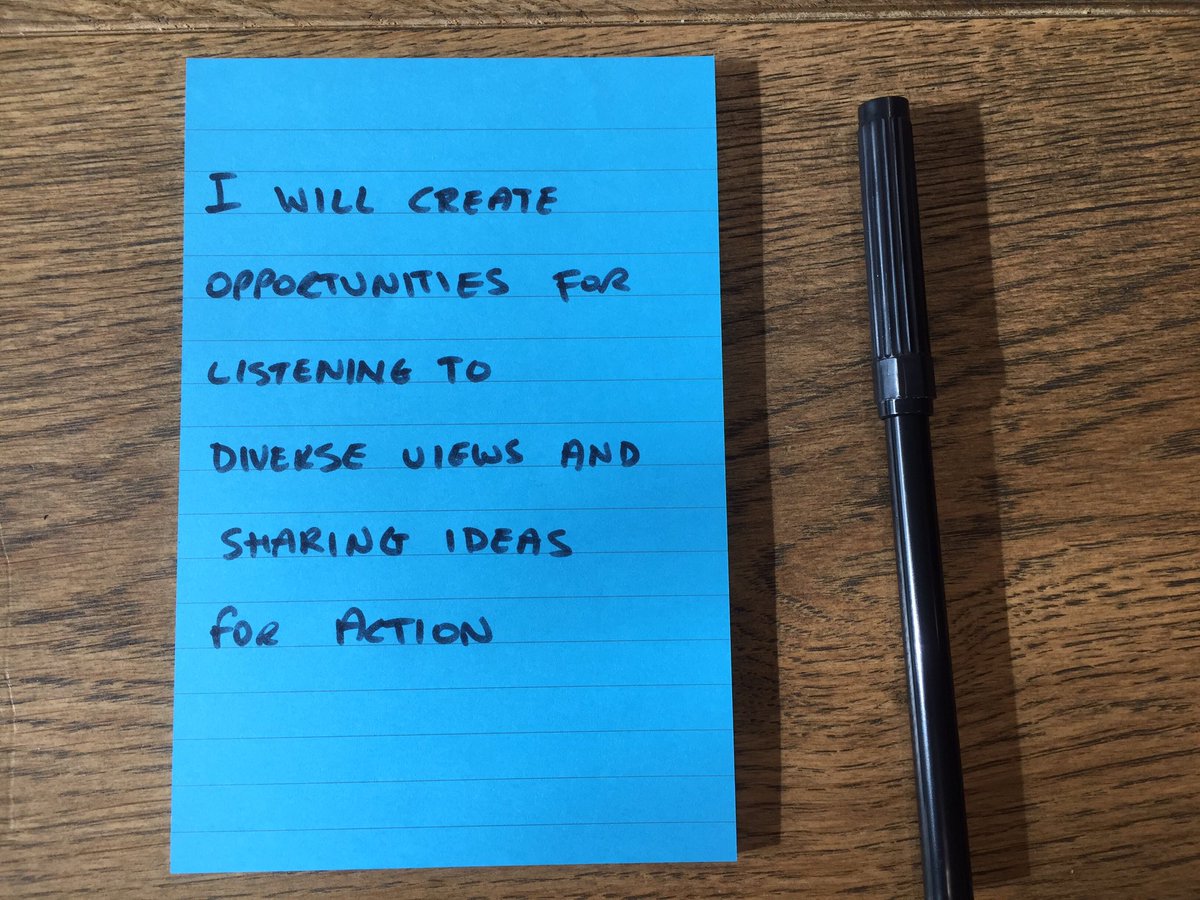 I WILL CREATE
OPPORTUNITIES FOR
LISTENING TO
DIVERSE VIEWS AND
SHARING IDEAS
FOR ACTION